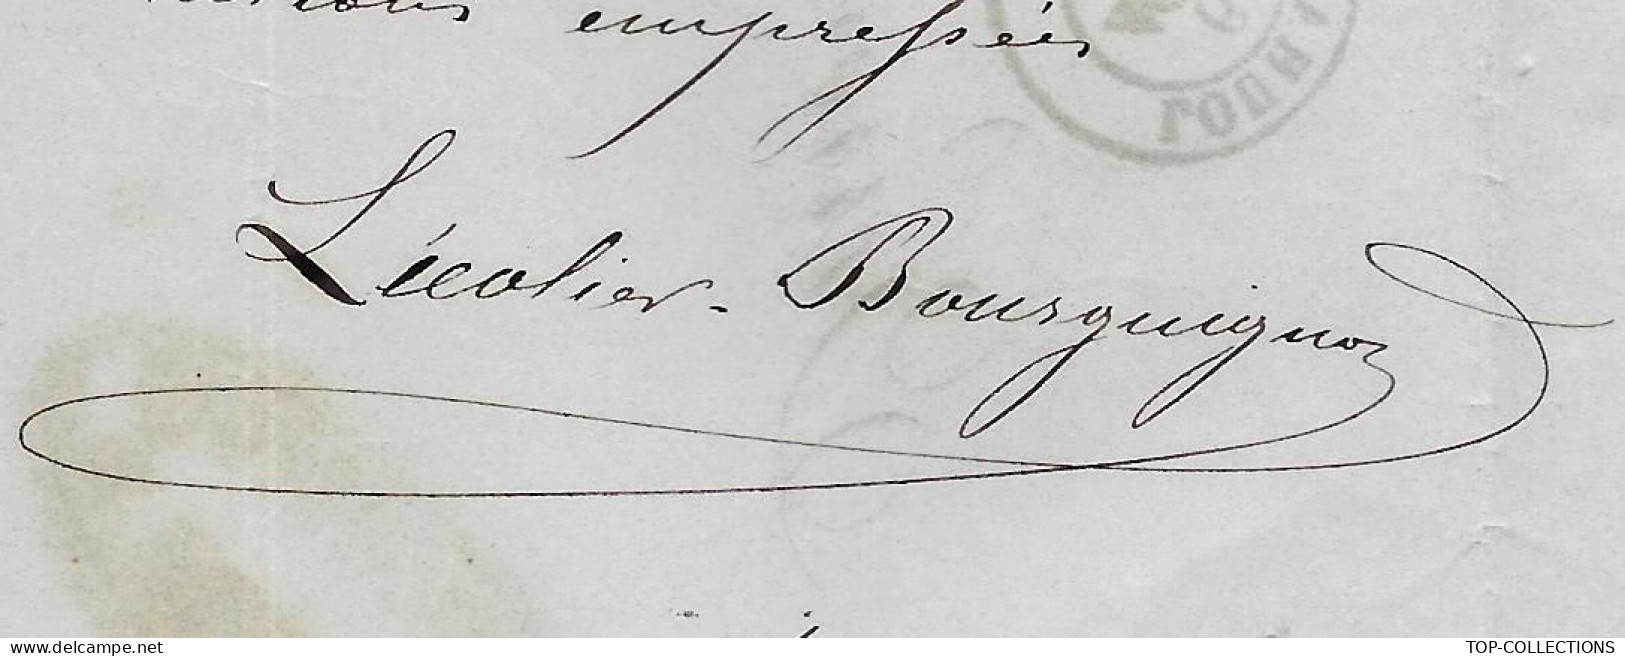 empressées
Lécolier-Bourguignon
delcampe.net
TOP-COLLECTIONS